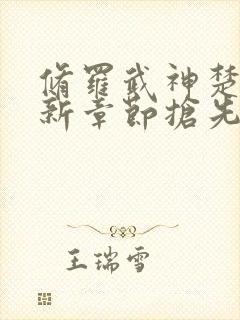 脩羅武神楚
新章節搶先
王瑞雪